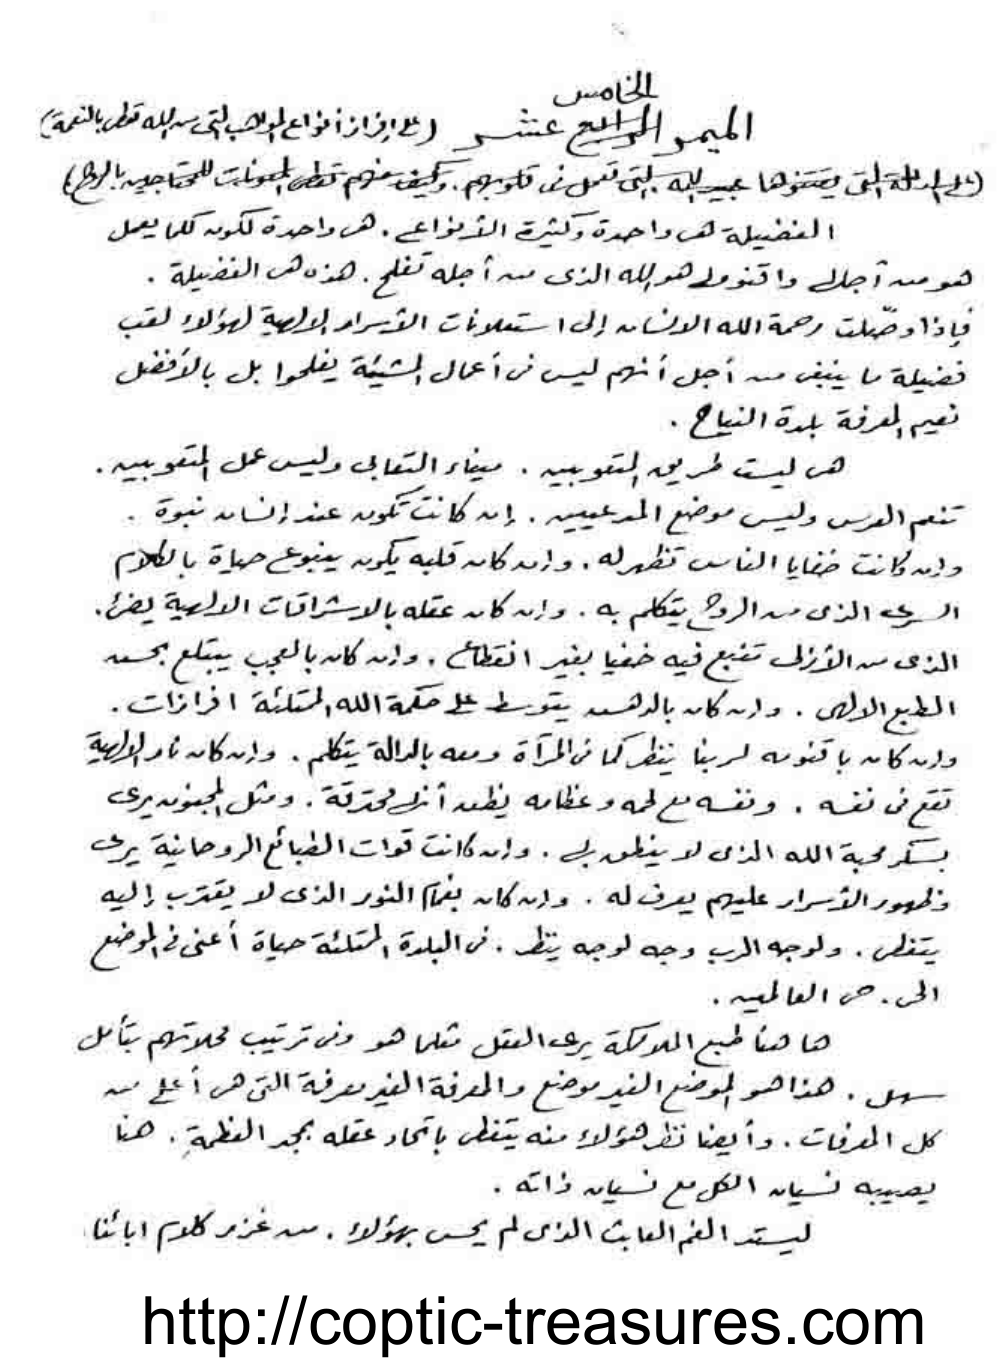 الخامس
الميمر الرابع عشر (على إفراز أنواع المواهب التي من الله تعطى بالنعمة)
(على الدالة التي يقتنوها عبيد الله التي تعمل في قلوبهم. وكيف منهم تعطى المعونات للمحتاجين بالروح)
الفضيلة هى واحدة وكثيرة الأنواع. هى واحدة لكونه كلما يعمل
هو من أجل واقنوم هو الله الذى من أجله تفلح. هذه هى الفضيلة.
فإذا وصّلت رحمة الله الانسان إلى استعلانات الأسرار الالهية لهؤلاء لقب
فضيلة ما ينبغى من أجل أنهم ليس فى أعمال المشيئة يفلحوا بل بالأفضل
نعيم المعرفة بلدة النياح.
هى ليست طريق المتعوبين. ميناء التعابى وليس عمل المتعوبين.
تنعم العرس وليس موضع المدعيين. إن كانت تكون عند إنسان نبوة.
وان كانت خفايا الناس تظهر له. وان كان قلبه يكون ينبوع حياة بالكلام
السرى الذى من الروح يتكلم به. وان كان عقله بالاشراقات الالهية يضئ.
الذى من الأزلى تنبع فيه خفيا بغير انقطاع. وان كان بالعجب يبتلع بحسن
الطبع الالهى. وان كان بالدهش يتوسط على حكمة الله الممتلئة افرازات.
وان كان باقنومه لربنا ينظر كما فى المرآة ومعه بالدالة يتكلم. وان كان نار الالهية
تقع فى نفسه. ونفسه مع لحمه وعظامه يظن أنها محترقة. ومثل المجنون يرى
بسكر محبة الله الذى لا ينطق به. وان كانت قوات الطبائع الروحانية يرى
وظهور الأسرار عليهم يعرف له. وان كان بغمام النور الذى لا يقترب إليه
يتغطى. ولوجه الرب وجه لوجه ينظر. فى البلدة الممتلئة حياة أعنى فى الموضع
الحى. حى العالمين.
ها هنا طبع الملائكة يرى العقل مثلما هو وفى ترتيب محلاتهم يتأمل
سهل. هذا هو الموضع الغير موضع والمعرفة الغير معرفة التى هى أعلى من
كل المعرفات. وأيضا نظر هؤلاء منه يتغطى باتحاد عقله بمجد العظمة. هنا
يصيبه نسيان الكل مع نسيان ذاته.
ليستد الفم العابث الذى لم يحس بهؤلاء. من غزر كلام ابائنا
http://coptic-treasures.com